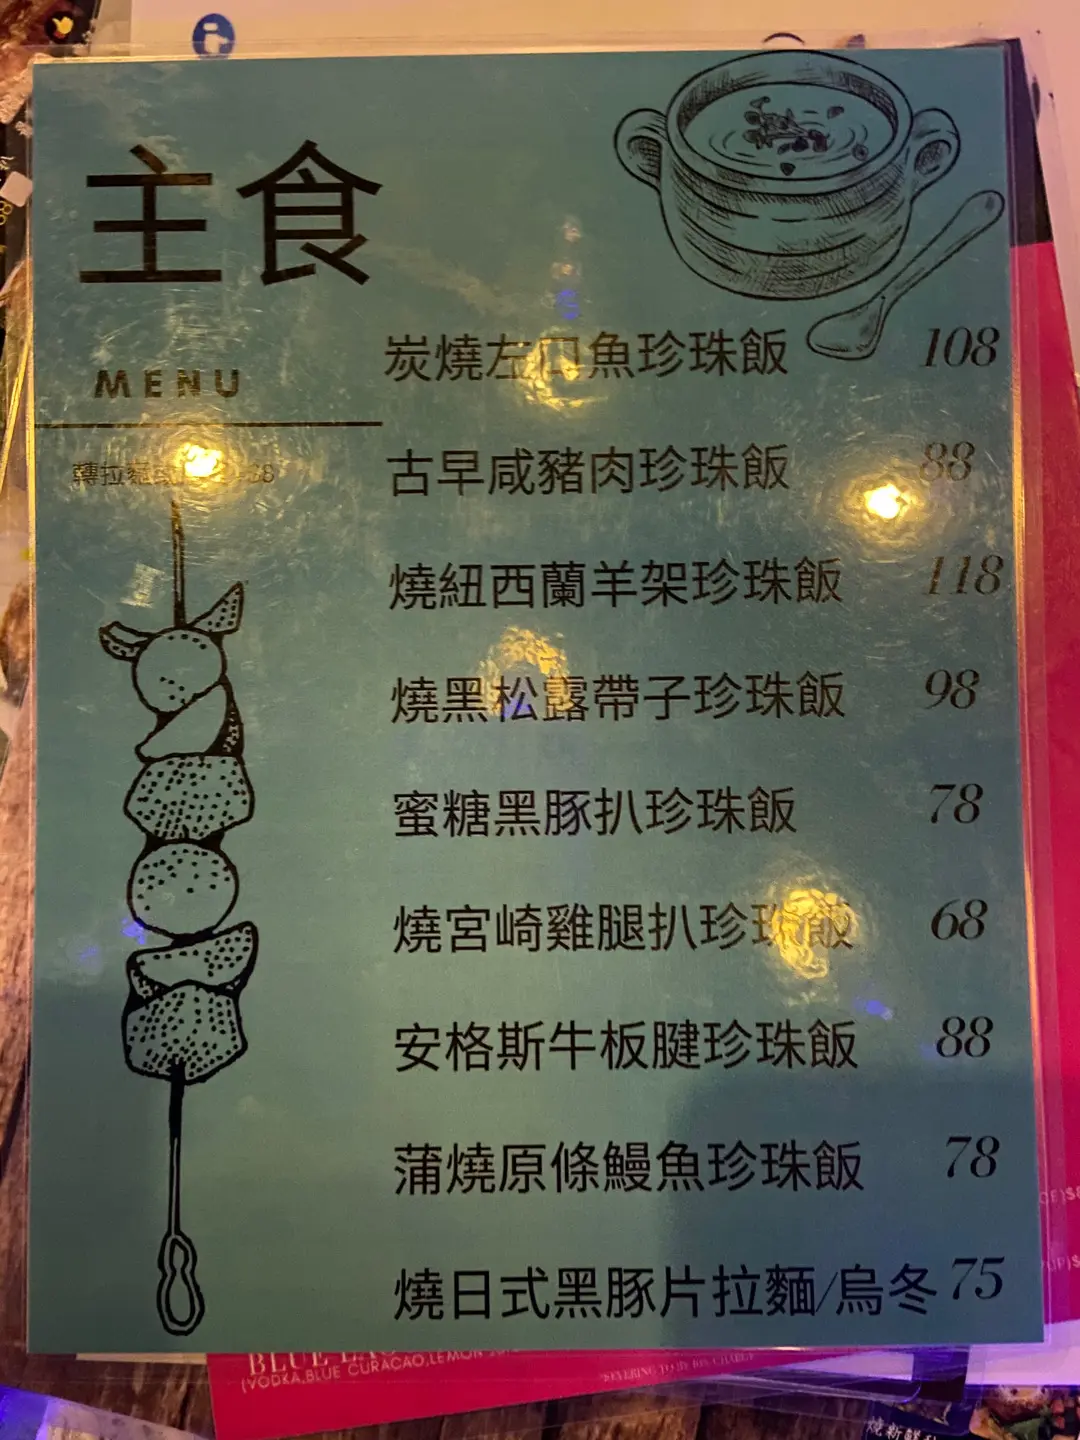 主食
MENU
轉拉麵
炭燒左口魚珍珠飯 108
古早咸豬肉珍珠飯 88
燒紐西蘭羊架珍珠飯 118
燒黑松露帶子珍珠飯 98
蜜糖黑豚扒珍珠飯 78
燒宮崎雞腿扒珍珠飯 68
安格斯牛板腱珍珠飯 88
蒲燒原條鰻魚珍珠飯 78
燒日式黑豚片拉麵/烏冬 75
BLUE
(VODKA,BLUE CURACAO,LEMON